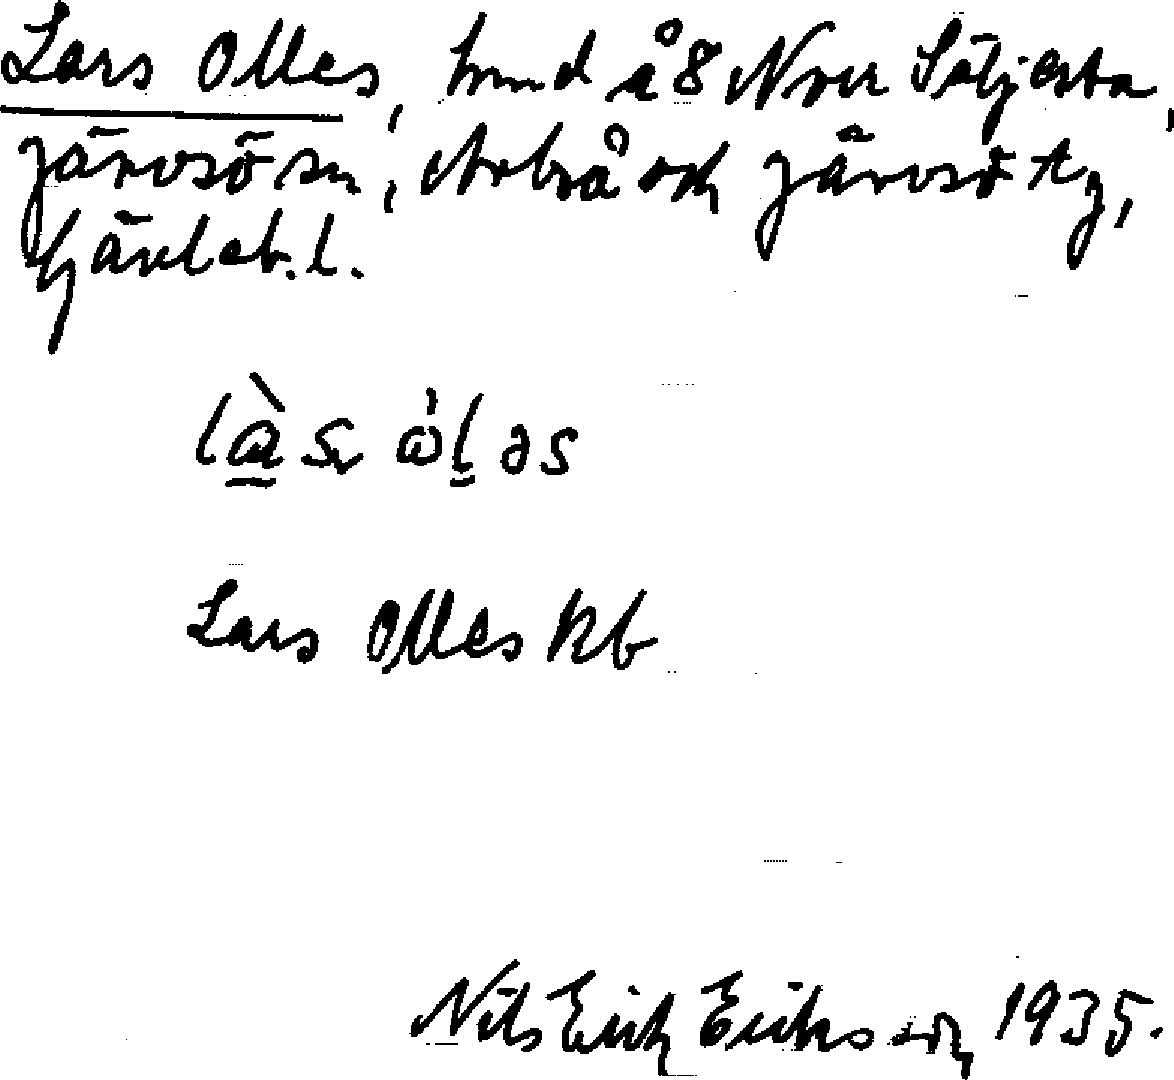 Lars Olles, hmd å 8 Norr Säljesta,
Järvsö sn, Arbrå och Järvsö tg,
Gävleb. l.
Lars Olles kb
Nils Erik Eriksson 1935.